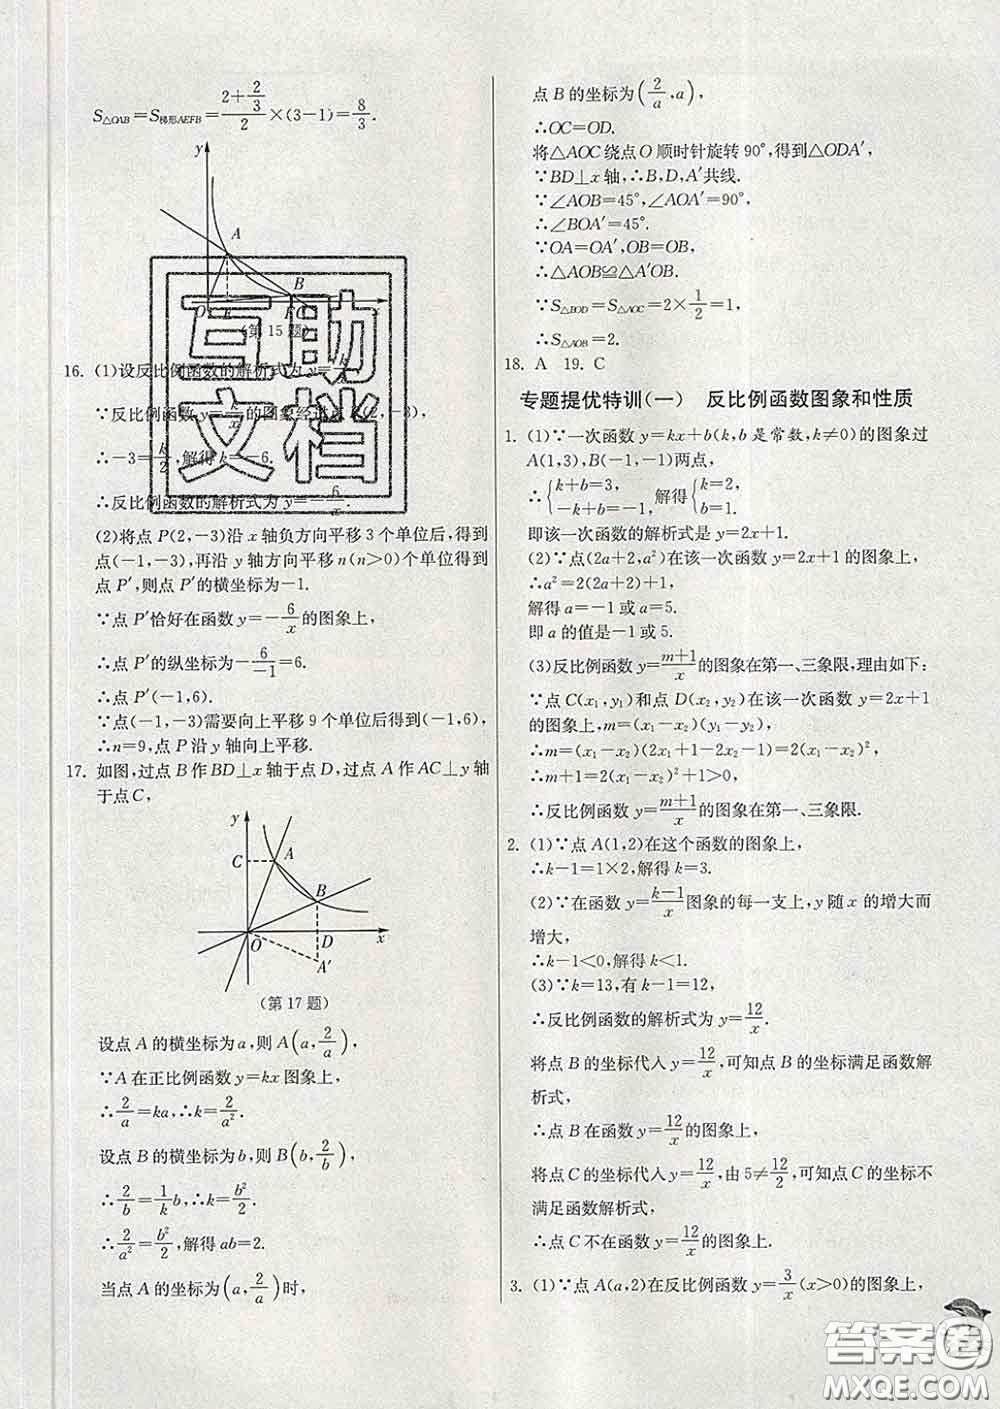 S△OAB=S梯形AEFB=(2+2/3)/2×(3-1)=8/3.
y
A
B
O E F x
(第15题)
16. (1)设反比例函数的解析式为y=k/x,
∵反比例函数y=k/x的图象经过点P(2,-3),
∴-3=k/2,解得k=-6.
∴反比例函数的解析式为y=-6/x.
(2)将点P(2,-3)沿x轴负方向平移3个单位后,得到
点(-1,-3),再沿y轴方向平移n(n>0)个单位得到
点P′,则点P′的横坐标为-1.
∵点P′恰好在函数y=-6/x的图象上,
∴点P′的纵坐标为-6/-1=6.
∴点P′(-1,6).
∵点(-1,-3)需要向上平移9个单位后得到(-1,6),
∴n=9,点P沿y轴向上平移.
17. 如图,过点B作BD⊥x轴于点D,过点A作AC⊥y轴
于点C,
y
C A
B
O D x
A′
(第17题)
设点A的横坐标为a,则A(a,2/a),
∵A在正比例函数y=kx图象上,
∴2/a=ka,∴k=2/a².
设点B的横坐标为b,则B(b,2/b),
∴2/b=1/k b,∴k=b²/2.
∴2/a²=b²/2,解得ab=2.
当点A的坐标为(a,2/a)时,
点B的坐标为(2/a,a),
∴OC=OD.
将△AOC绕点O顺时针旋转90°,得到△ODA′,
∵BD⊥x轴,∴B,D,A′共线.
∵∠AOB=45°,∠AOA′=90°,
∴∠BOA′=45°.
∵OA=OA′,OB=OB,
∴△AOB≌△A′OB.
∵S△BOD=S△AOC=2×1/2=1,
∴S△AOB=2.
18. A 19. C
专题提优特训(一) 反比例函数图象和性质
1. (1)∵一次函数y=kx+b(k,b是常数,k≠0)的图象过
A(1,3),B(-1,-1)两点,
∴{k+b=3, -k+b=-1, 解得{k=2, b=1.
即该一次函数的解析式是y=2x+1.
(2)∵点(2a+2,a²)在该一次函数y=2x+1的图象上,
∴a²=2(2a+2)+1,
解得a=-1或a=5.
即a的值是-1或5.
(3)反比例函数y=m+1/x的图象在第一、三象限,理由如下:
∵点C(x₁,y₁)和点D(x₂,y₂)在该一次函数y=2x+1
的图象上,m=(x₁-x₂)(y₁-y₂),
∴m=(x₁-x₂)(2x₁+1-2x₂-1)=2(x₁-x₂)²,
∴m+1=2(x₁-x₂)²+1>0,
∴反比例函数y=m+1/x的图象在第一、三象限.
2. (1)∵点A(1,2)在这个函数的图象上,
∴k-1=1×2,解得k=3.
(2)∵在函数y=k-1/x图象的每一支上,y随x的增大而
增大,
∴k-1<0,解得k<1.
(3)∵k=13,有k-1=12,
∴反比例函数的解析式为y=12/x.
将点B的坐标代入y=12/x,可知点B的坐标满足函数解
析式,
∴点B在函数y=12/x的图象上,
将点C的坐标代入y=12/x,由5≠12/2,可知点C的坐标不
满足函数解析式,
∴点C不在函数y=12/x的图象上.
3. (1)∵点A(a,2)在反比例函数y=3/x(x>0)的图象上,
互助
文档
答案圈
MXQE.COM